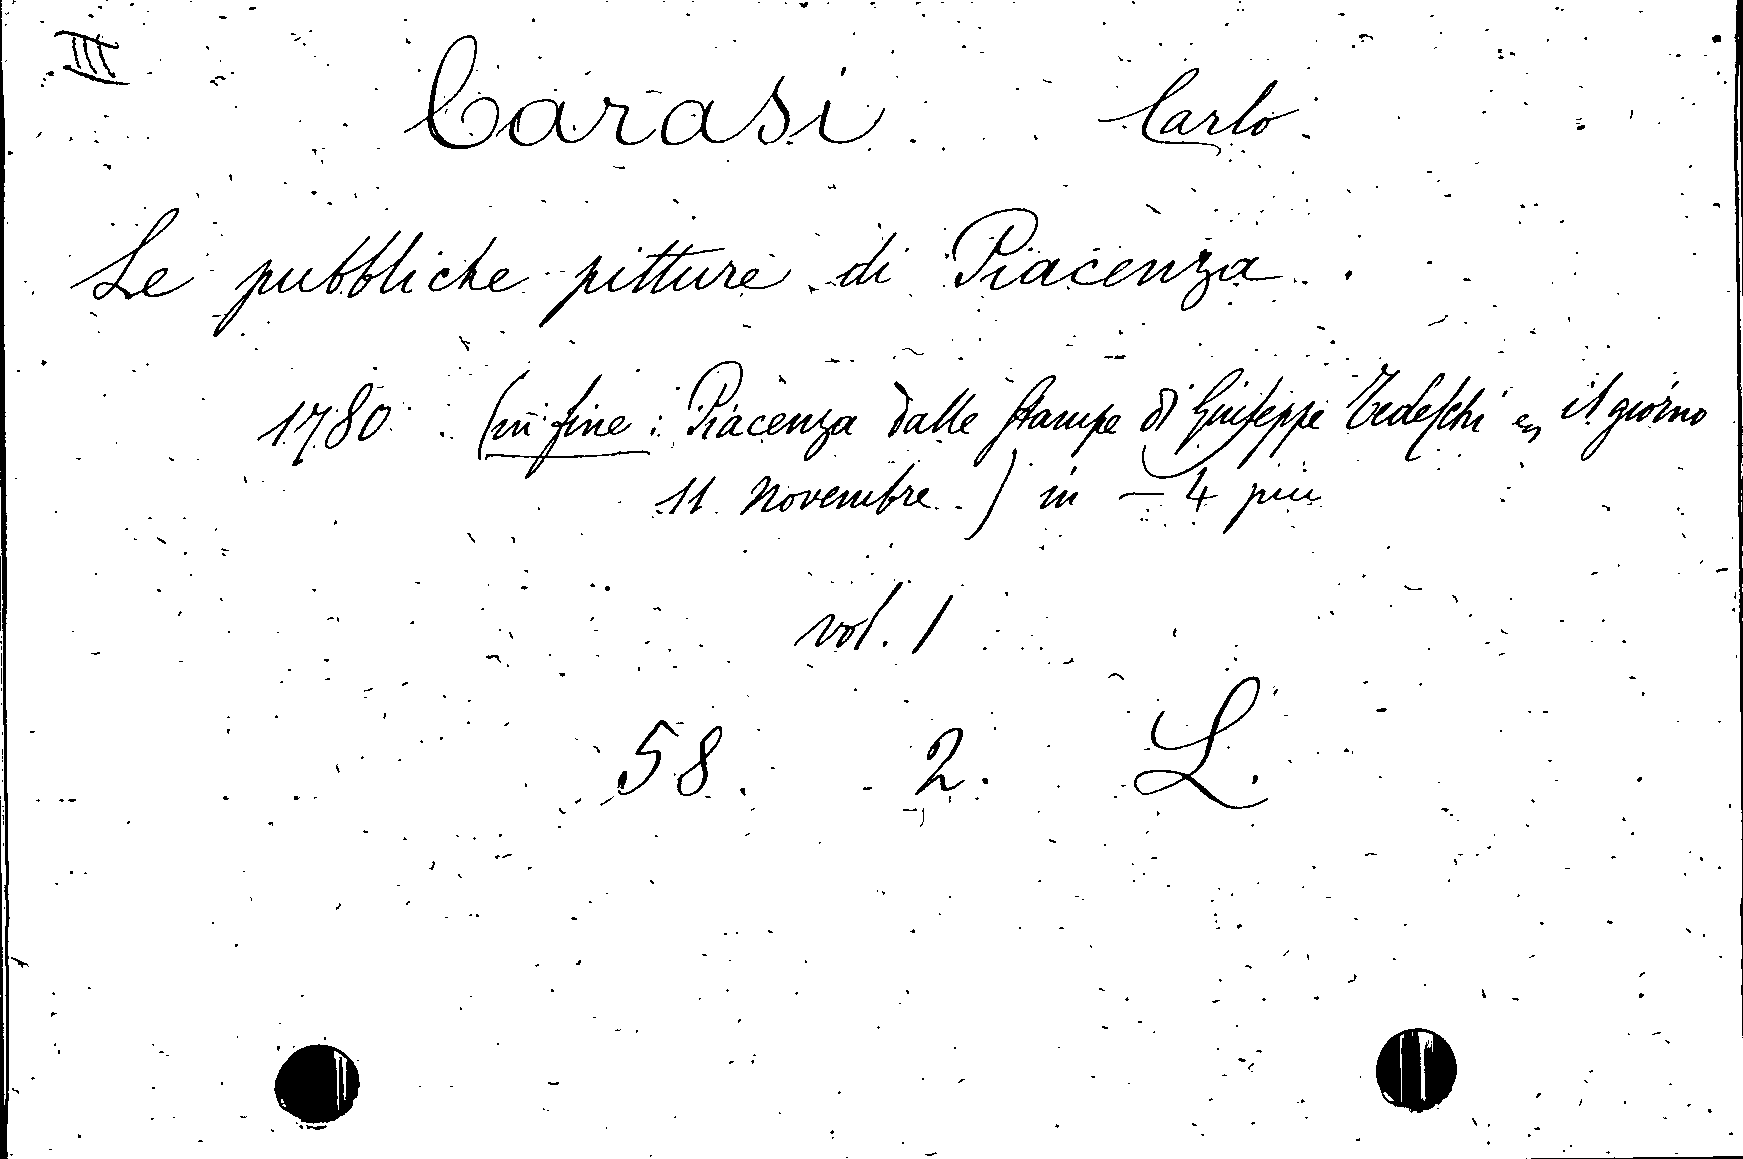 III
Carasi Carlo
Le pubbliche pitture di Piacenza.
1780 (in fine: Piacenza dalle stampe di Giuseppe Tedeschi il giorno
11 Novembre.) in - 4 piu
vol. 1
58. 2. L.